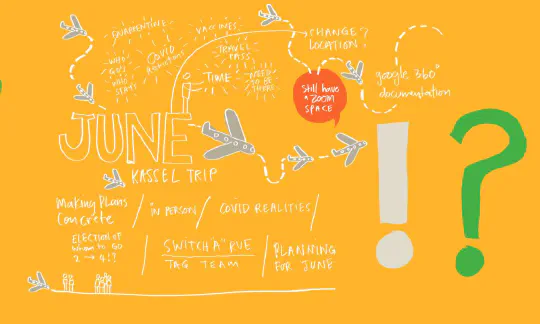 QUARANTINE
VACCINES
WHO
GOES
WHO
STAYS
COVID
TRAVEL
PASS
NEED
TO BE
THERE
TIME
CHANGE?
LOCATION?
still have
a ZOOM
SPACE
google 360°
documentation
JUNE
KASSEL TRIP
Making Plans
Concrete
/ IN PERSON /
COVID REALITIES /
ELECTION OF
whom to GO
2 → 4!?
/ SWITCH A" RUE
TAG TEAM
/ PLANNING
FOR JUNE
! ?